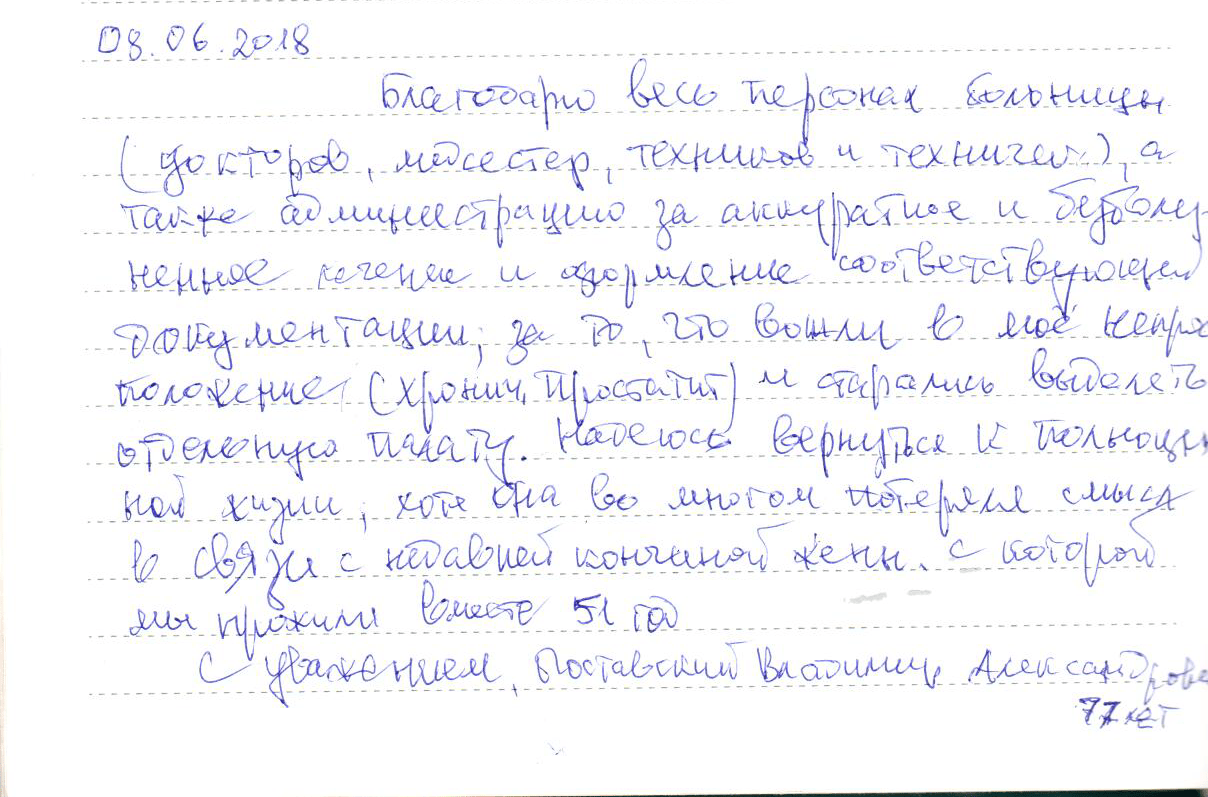 08.06.2018
Благодарю весь персонал больницы
(докторов, медсестер, техников и техничек), а
также администрацию за аккуратное и безболез-
ненное лечение и оформление соответствующей
документации; за то, что вошли в моё непрос
положение (хронич. простатит) и старались выделить
отдельную палату. Надеюсь вернуться к полноцен
ной жизни, хотя она во многом потеряла смысл
в связи с недавней кончиной жены, с которой
мы прожили вместе 51 год
С уважением, Владимир Александрови
77 лет